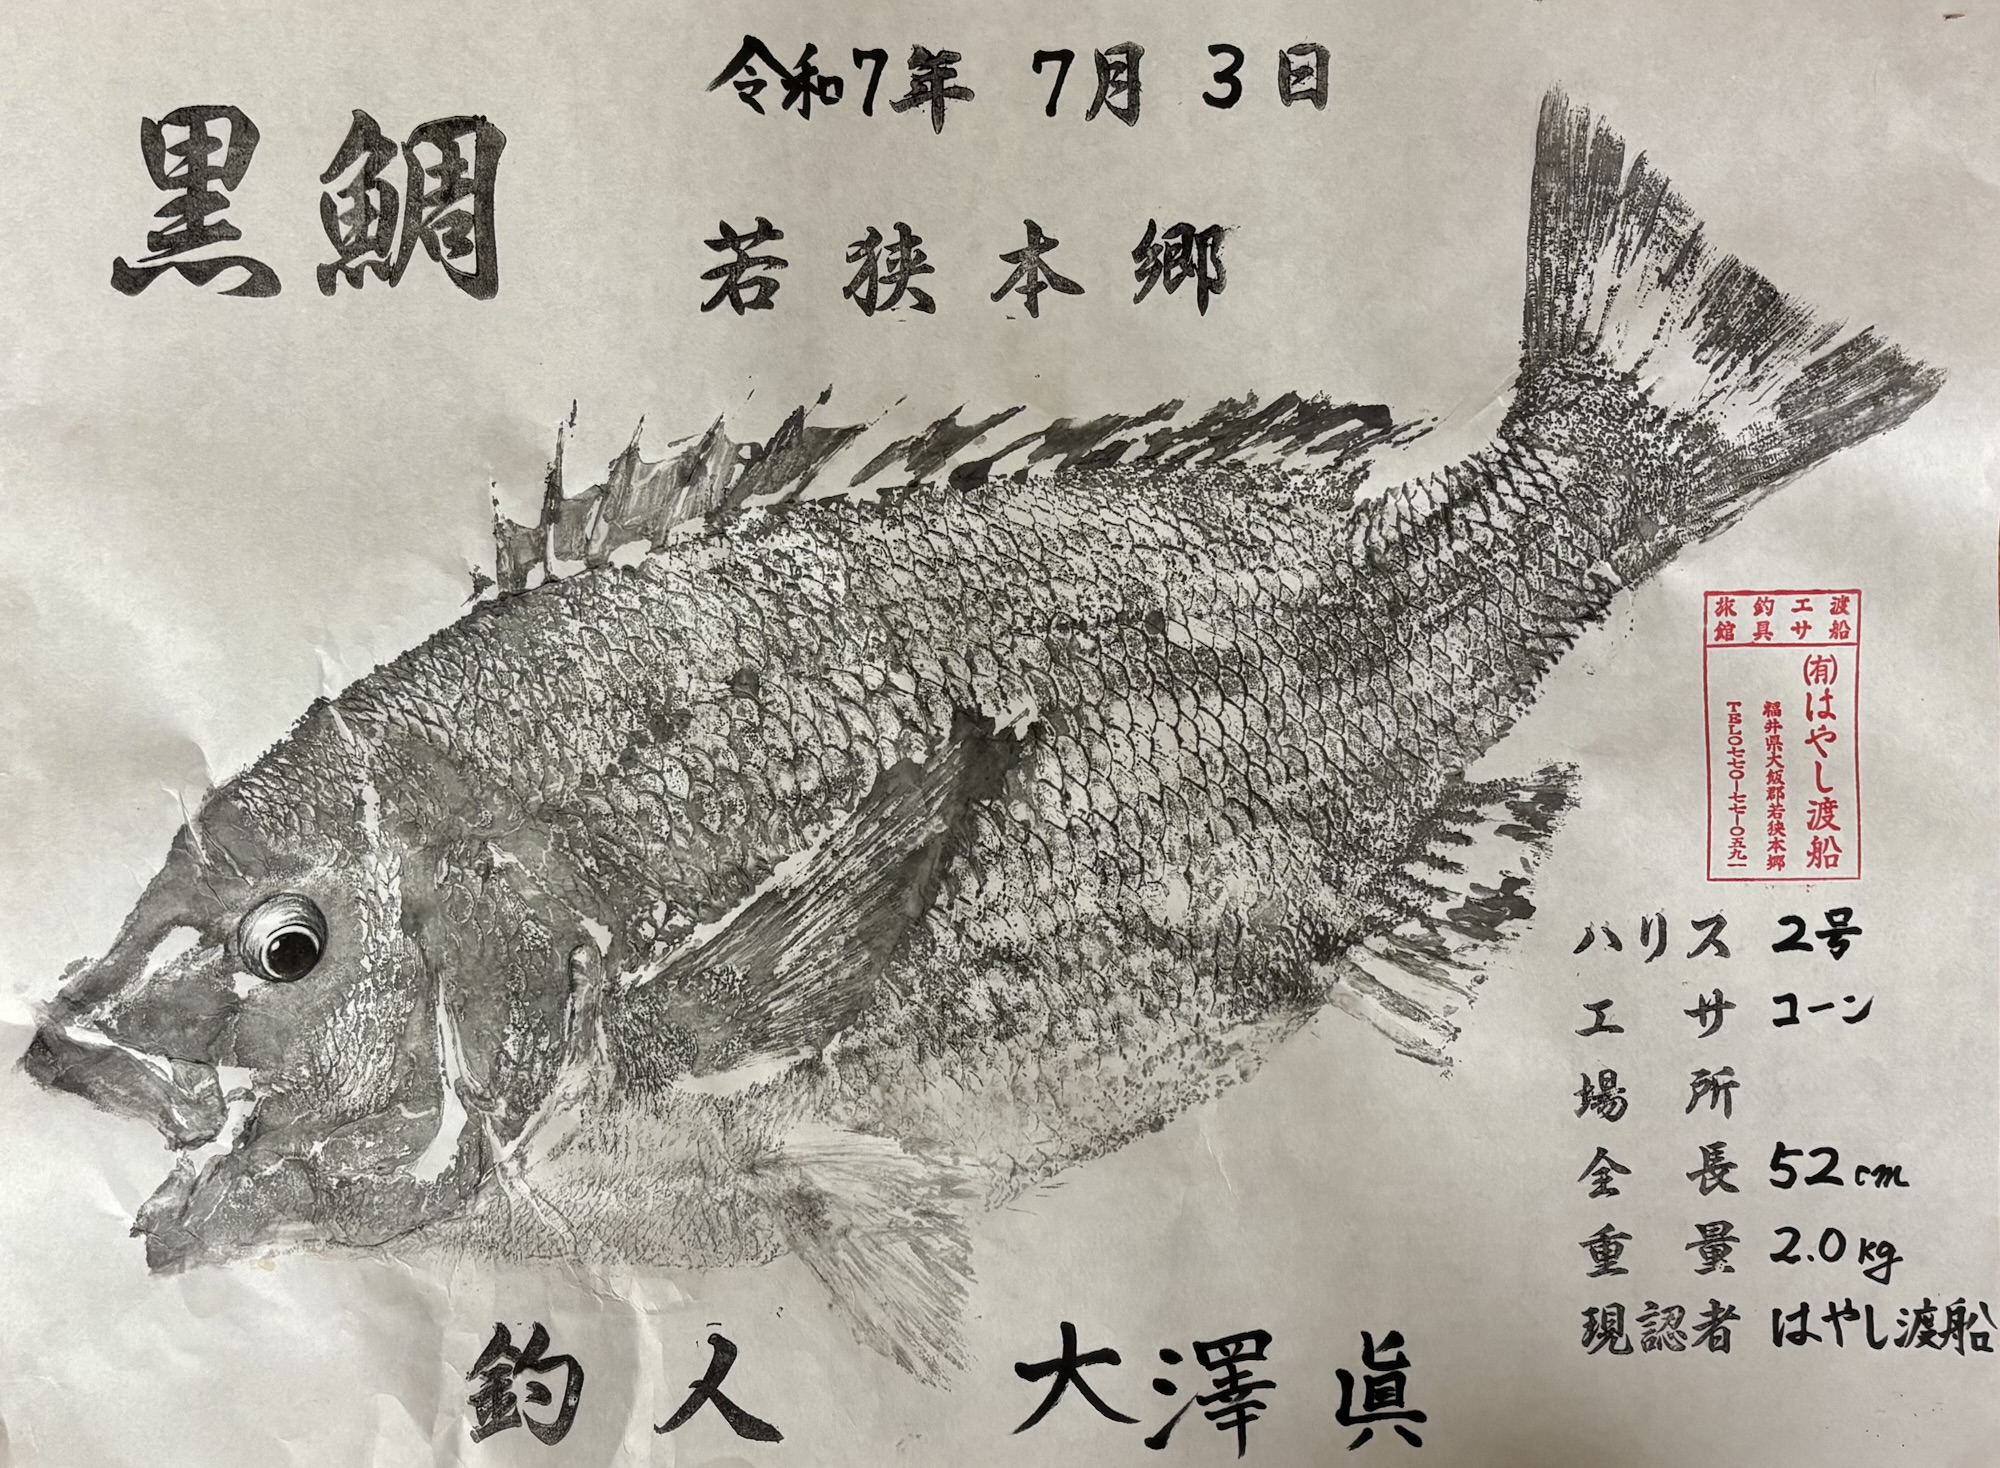 令和7年 7月 3日
黒鯛
若狭本郷
渡船 エサ 釣具 旅館
(有)はやし渡船
福井県大飯郡若狭本郷
TEL〇七七〇―七七―〇五九一
ハリス 2号
エサ コーン
場所
全長 52cm
重量 2.0kg
現認者 はやし渡船
釣人 大澤眞